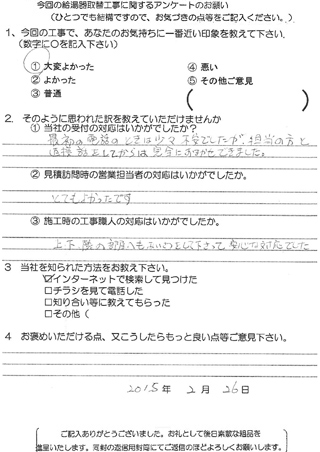 今回の給湯器取替工事に関するアンケートのお願い
(ひとつでも結構ですので、お気づきの点等をご記入ください。)
1、今回の工事で、あなたのお気持ちに一番近い印象を教えて下さい。
(数字に○を記入下さい)
① 大変よかった ④ 悪い
② よかった ⑤ その他ご意見
③ 普通 ( )
2. そのように思われた訳を教えていただけませんか
① 当社の受付の対応はいかがでしたか?
最初の電話のときは少々不安でしたが、担当の方と
直接話としてからは完全におまかせできました。
② 見積訪問時の営業担当者の対応はいかがでしたか。
とてもよかったです
③ 施工時の工事職人の対応はいかがでしたか。
上下階の部屋へもあいさつして下さって安心な対応でした
3 当社を知られた方法をお教え下さい。
☑インターネットで検索して見つけた
□チラシを見て電話した
□知り合い等に教えてもらった
□その他(
4 お褒めいただける点、又こうしたらもっと良い点等ご意見下さい。
2015年 2月 26日
ご記入ありがとうございました。お礼として後日素敵な粗品を
進呈いたします。同封の返信用封筒にてご返信のほどよろしくお願いします。